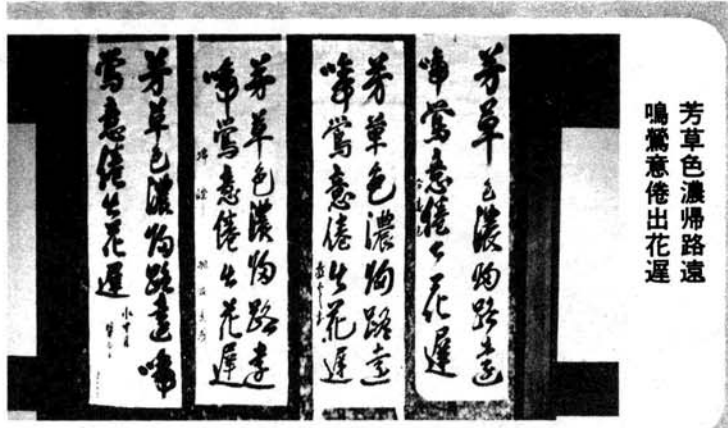 芳草色濃帰路遠
鳴鶯意倦出花遅
芳草色濃帰路遠
啼鶯意倦出花遲
芳草色濃帰路遠
啼鶯意倦出花遲
芳草色濃帰路遠
啼鶯意倦出花遲
芳草色濃帰路遠啼
鶯意倦出花遲